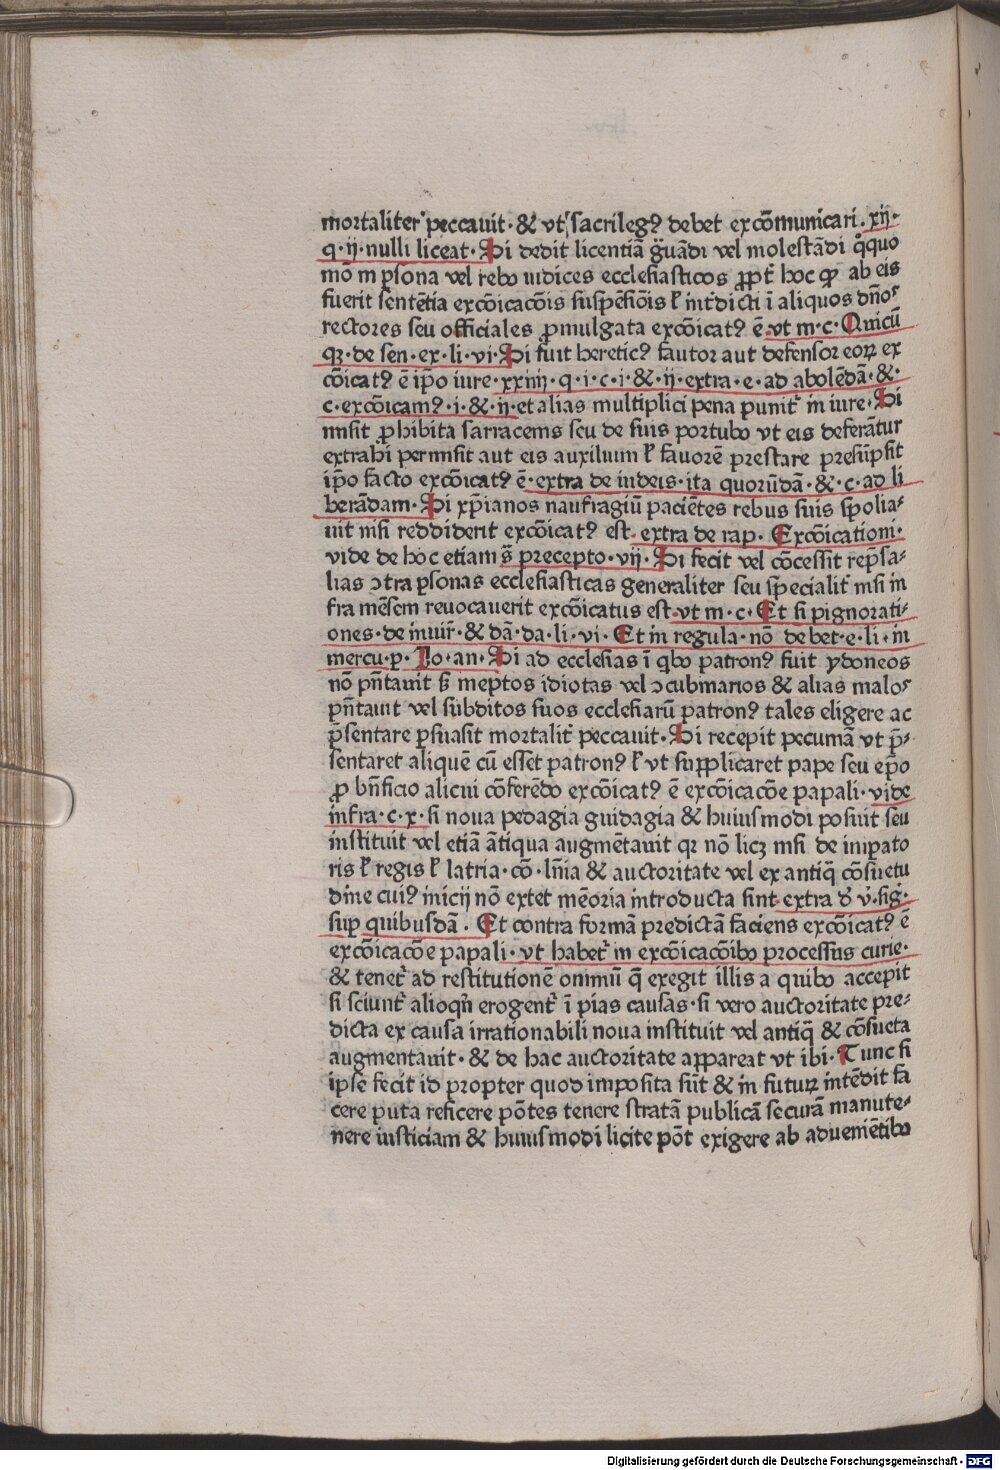 mortaliter peccauit· & vt sacrilegꝰ debet excōmunicari· xij·
q·ij·nulli liceat· Si dedit licentiā g̃uādi vel molestādi q̊quo
mō in ꝑsona vel rebꝰ iudices ecclesiasticos ꝓpt̉ hoc ꝙ ab eis
fuerit sentētia excōicacōis suspēsiōis ł int̉dicti ī aliquos dn̄oˢ
rectores seu officiales ꝓmulgata excōicatꝰ ē vt in·c·Quicū
qꝫ·de sen·ex·li·vi· Si fuit hereticꝰ fautor aut defensor eoꝝ ex
cōicatꝰ ē ip̄o iure·xxiiij·q·i·c·i·&·ij·extra·e·ad abolēdā·&·
c·excōicamꝰ·i·&·ij·et alias multiplici pena punit̉ in iure· Si
misit ꝓhibita sarracenis seu de suis portubꝰ vt eis deferātur
extrahi permisit aut eis auxilium ł fauorē prestare presūpsit
ip̄o facto excōicatꝰ ē·extra de iudeis·ita quorūdā·&·c·ad li
berādam· Si xp̄ianos naufragiū paciētes rebus suis spolia⸗
uit nisi reddiderit excōicatꝰ est· extra de rap· Excōicationi·
vide de hoc etiam s̄ precepto·vij· Si fecit vel cōcessit rep̄sa⸗
lias ↄtra ꝑsonas ecclesiasticas generaliter seu specialit̉ nisi in
fra mēsem reuocauerit excōicatus est·vt in·c·Et si pignorati⸗
ones·de iniur̄·& dā·da·li·vi· Et in regula·nō debet·e·li·in
mercu·p·Jo·an· Si ad ecclesias ī qͥbꝰ patronꝰ fuit ydoneos
nō pn̄tauit s̄ ineptos idiotas vel ↄcubinarios & alias maloˢ
pn̄tauit vel subditos suos ecclesiarū patronꝰ tales eligere ac
p̄sentare ꝑsuasit mortalit̉ peccauit· Si recepit pecuniā vt p̄⸗
sentaret aliquē cū esset patronꝰ ł vt supplicaret pape seu ep̄o
ꝓ bn̄ficio alicui cōferēdo excōicatꝰ ē excōicacōe papali·vide
infra·c·x· si noua pedagia guidagia & huiusmodi posuit seu
instituit vel etiā ātiqua augmētauit qꝛ nō licꝫ nisi de inꝑato
ris ł regis ł latria·cō·ln̄ia & auctoritate vel ex antiq̄ cōsuetu
dine cuiꝰ inicij nō extet mēoria introducta sint·extra đ v̉·sig̉·
suꝑ quibusdā· Et contra formā predictā faciens excōicatꝰ ē
excōicacōe papali·vt habet̉ in excōicacōibꝰ processus curie·
& tenet̉ ad restitutionē omniū q̄ exegit illis a quibꝰ accepit
si sciunt̉ alioqͥn erogent̉ ī pias causas·si vero auctoritate pre⸗
dicta ex causa irrationabili noua instituit vel antiq̄ & cōsueta
augmentauit·& de hac auctoritate appareat vt ibi· Tunc si
ipse fecit id propter quod imposita sūt & in futuꝝ intēdit fa
cere puta reficere pōtes tenere stratā publicā securā manute⸗
nere iusticiam & huiusmodi licite pōt exigere ab aduenietībꝰ
Digitalisierung gefördert durch die Deutsche Forschungsgemeinschaft · DFG